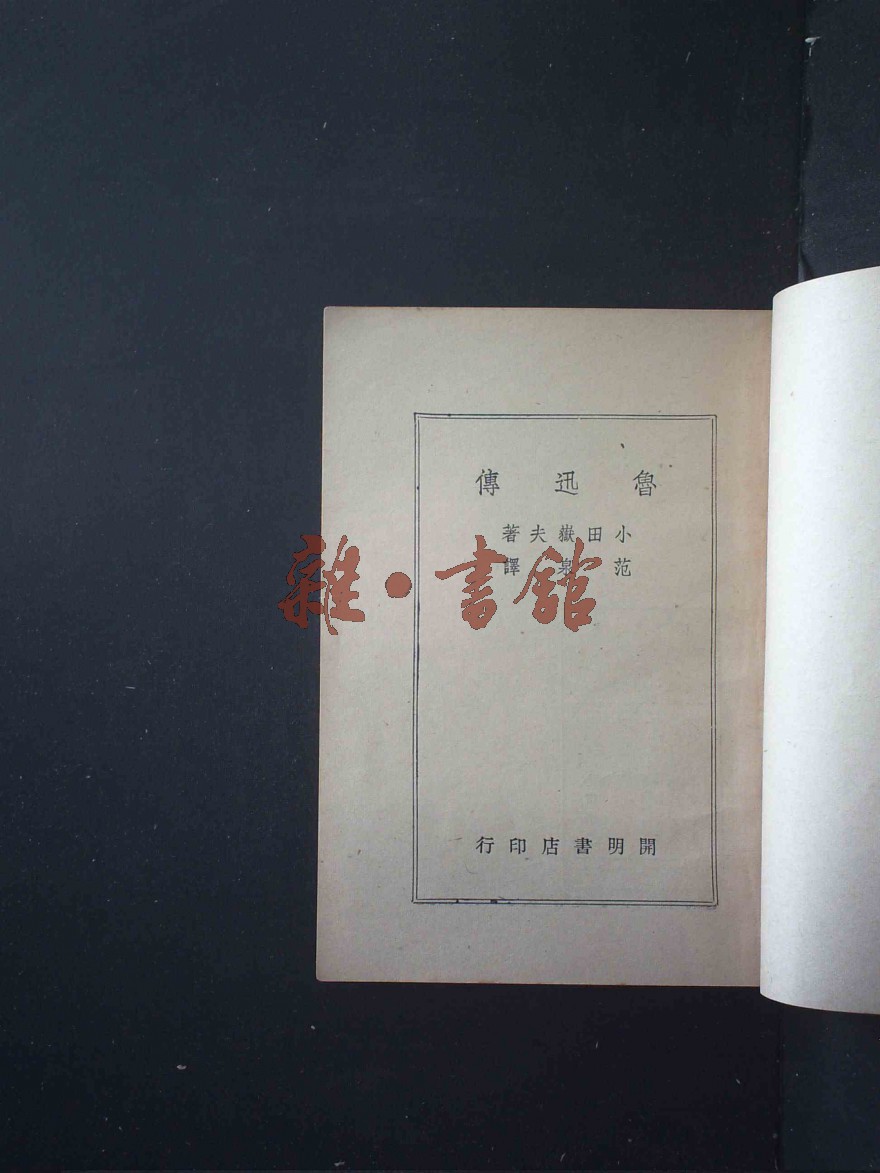 魯迅傳
小田嶽夫著
范泉譯
雜·書館
開明書店印行